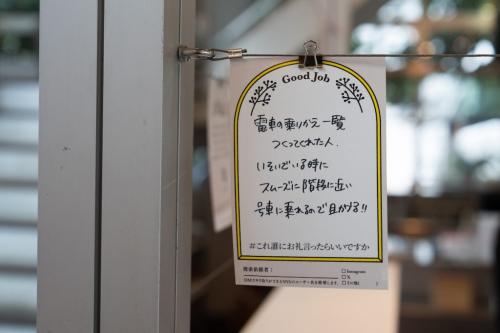 Good Job
電車の乗りかえ一覧
つくってくれた人.
いそいでいる時に
スムーズに階段に近い
号車に乗れるので助かる!!
#これ誰にお礼言ったらいいですか
捜索依頼者：
□ Instagram
□ X
□ その他